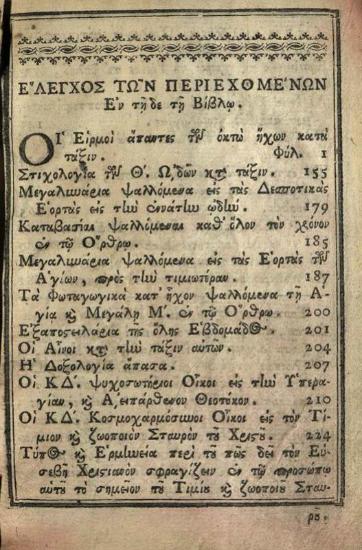 ΕΛΕΓΧΟΣ ΤΩΝ ΠΕΡΙΕΧΟΜΕΝΩΝ
Ἐν τῇδε τῇ Βίβλῳ.
ΟἹ Εἱρμοὶ ἅπαντες τῶν ὀκτὼ ἤχων κατὰ
τάξιν. Φύλ. 1
Στιχολογία τῶν Θ. Ὠδῶν κτ τάξιν. 155
Μεγαλυνάρια ψαλλόμενα εἰς τὰς Δεσποτικὰς
Ἑορτὰς εἰς τὴν ἐννάτην ὠδήν. 179
Καταβασίαι ψαλλόμεναι καθ' ὅλον τὸν χρόνον
ἐν τῷ Ὄρθρῳ. 185
Μεγαλυνάρια ψαλλόμενα εἰς τὰς Ἑορτὰς τῶν
Ἁγίων, πρὸς τὴν τιμιωτέραν. 187
Τὰ Φωταγωγικὰ κατ' ἦχον ψαλλόμενα τῇ Ἁ-
γίᾳ ϗ Μεγάλῃ Μ. ἐν τῷ Ὄρθρῳ. 200
Ἐξαποστειλάρια τῆς ὅλης Ἑβδομάδος. 201
Οἱ Αἶνοι κτ τὴν τάξιν αὐτῶν. 204
Ἡ Δοξολογία ἅπασα. 207
Οἱ ΚΔ. Ψυχοσωτήριοι Οἶκοι εἰς τὴν Ὑπερα-
γίαν, ϗ Ἀειπάρθενον Θεοτόκον. 210
Οἱ ΚΔ. Κοσμοχαρμόσυνοι Οἶκοι εἰς τὸν Τί-
μιον ϗ ζωοποιὸν Σταυρὸν τοῦ Χριστοῦ. 224
Τύπος ϗ Ἑρμηνεία περὶ τοῦ πῶς δεῖ τὸν Εὐ-
σεβῆ Χριστιανὸν σφραγίζειν ἐν τῷ προσώπῳ
αὐτοῦ τὸ σημεῖον τοῦ Τιμίου ϗ ζωοποιοῦ Σταυ-
ροῦ.